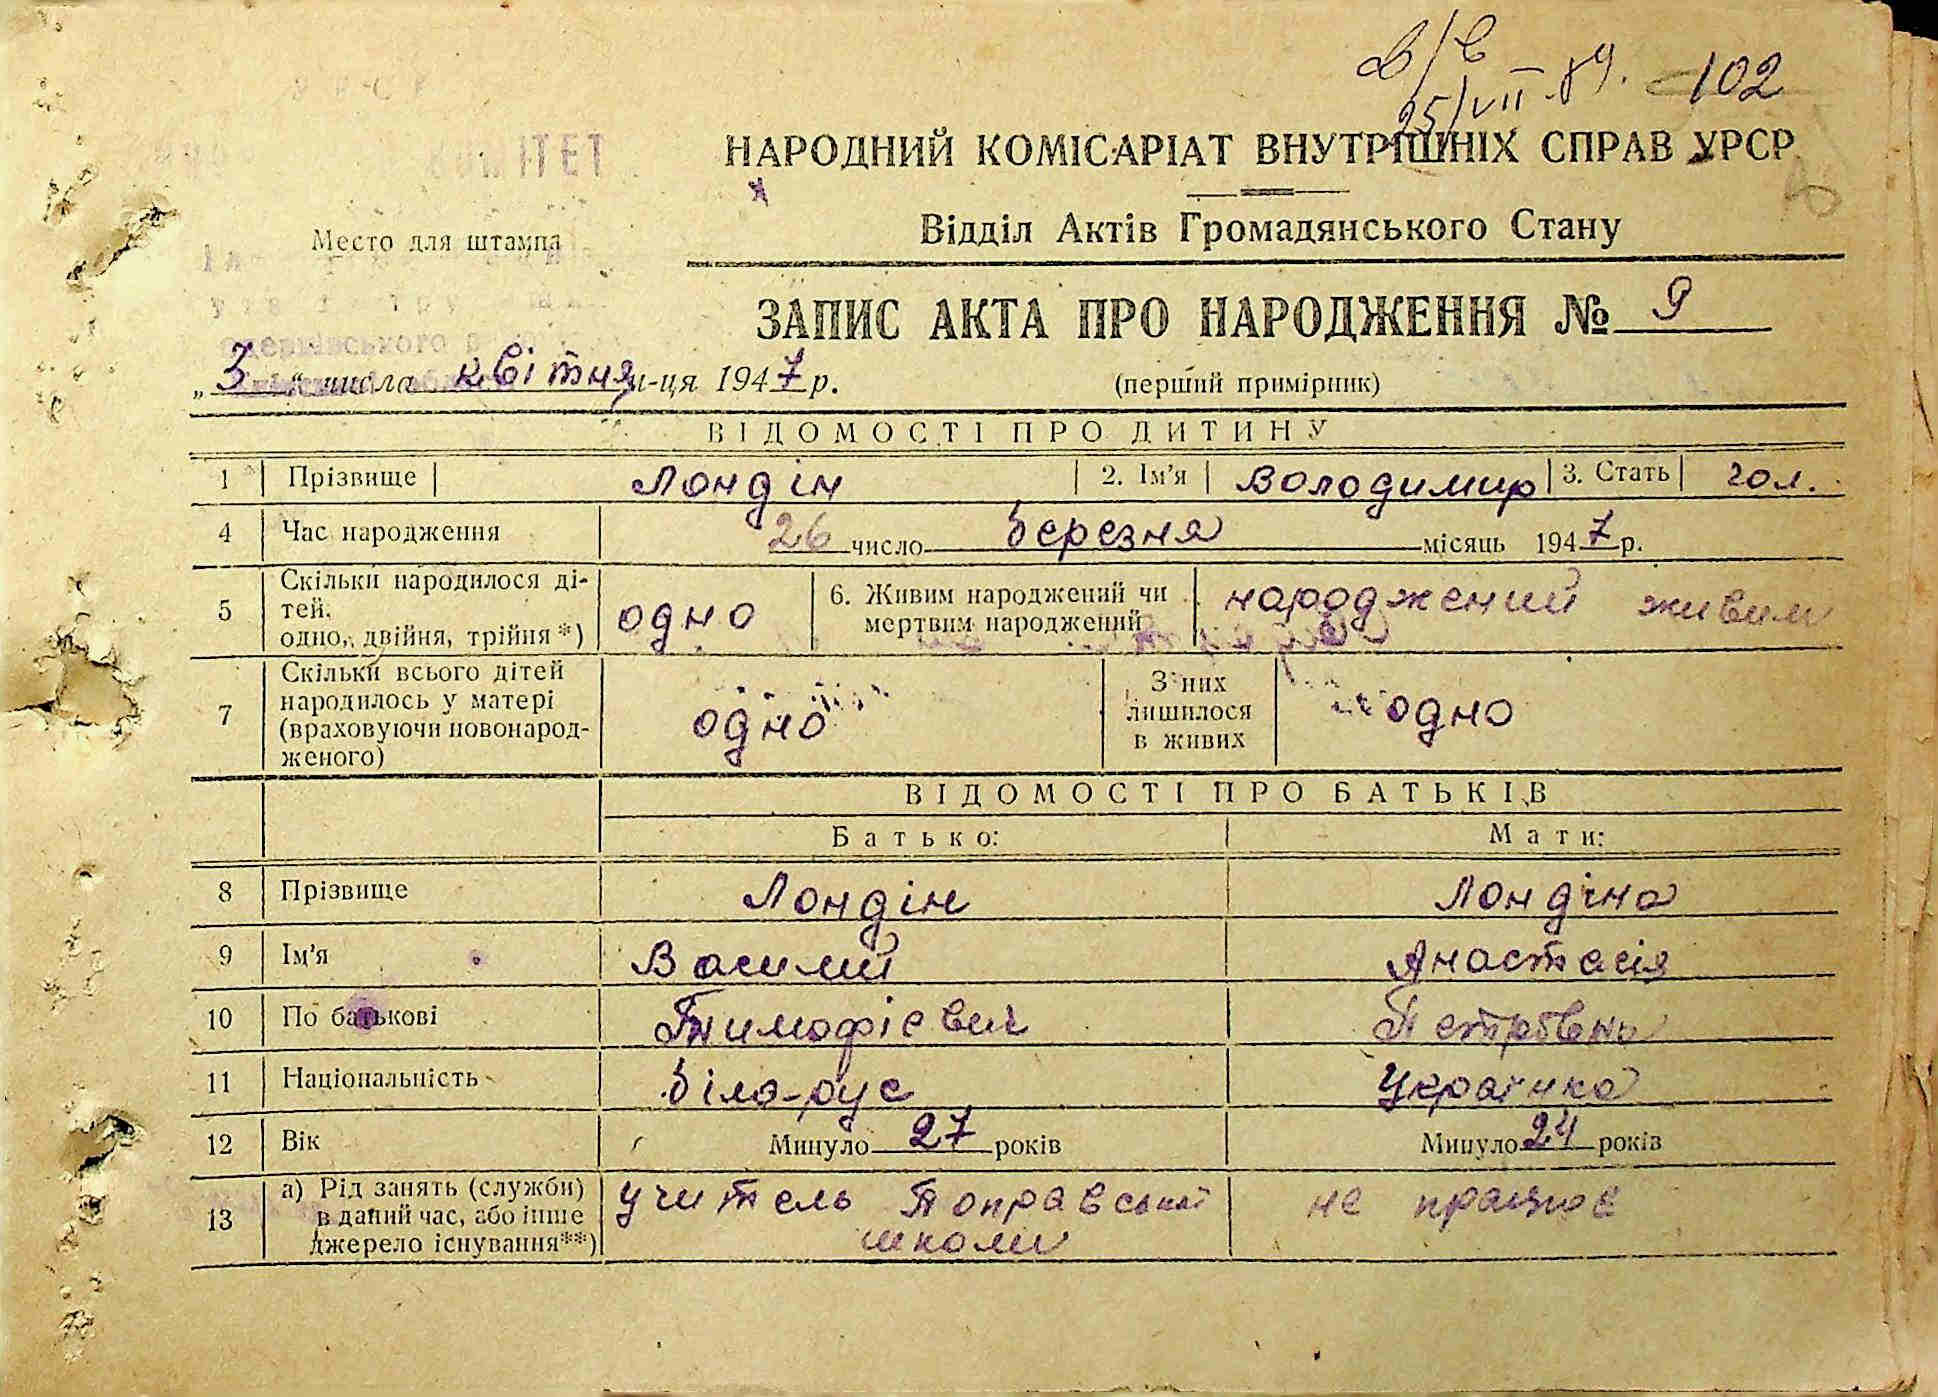 В/В
25/VII-89. 102
КОМІТЕТ
НАРОДНИЙ КОМІСАРІАТ ВНУТРІШНІХ СПРАВ УРСР
Відділ Актів Громадянського Стану
Место для штампа
ЗАПИС АКТА ПРО НАРОДЖЕННЯ № 9
„3“ числа квітня м-ця 1947 р. (перший примірник)
ВІДОМОСТІ ПРО ДИТИНУ
1 Прізвище Лондін 2. Ім'я Володимир 3. Стать чол.
4 Час народження 26 число березня місяць 1947 р.
5 Скільки народилося ді-
тей.
одно, двійня, трійня *) одно 6. Живим народжений чи
мертвим народжений народжений живим
7 Скільки всього дітей
народилось у матері
(враховуючи новонарод-
женого) одно З них
лишилося
в живих одно
ВІДОМОСТІ ПРО БАТЬКІВ
Батько: Мати:
8 Прізвище Лондін Лондіна
9 Ім'я Василий Анастасія
10 По батькові Тимофієвич Петрівна
11 Національність біла-рус Українка
12 Вік Минуло 27 років Минуло 24 років
13 а) Рід занять (служби)
в даний час, або інше
джерело існування**) учитель Топравської
школи не працює